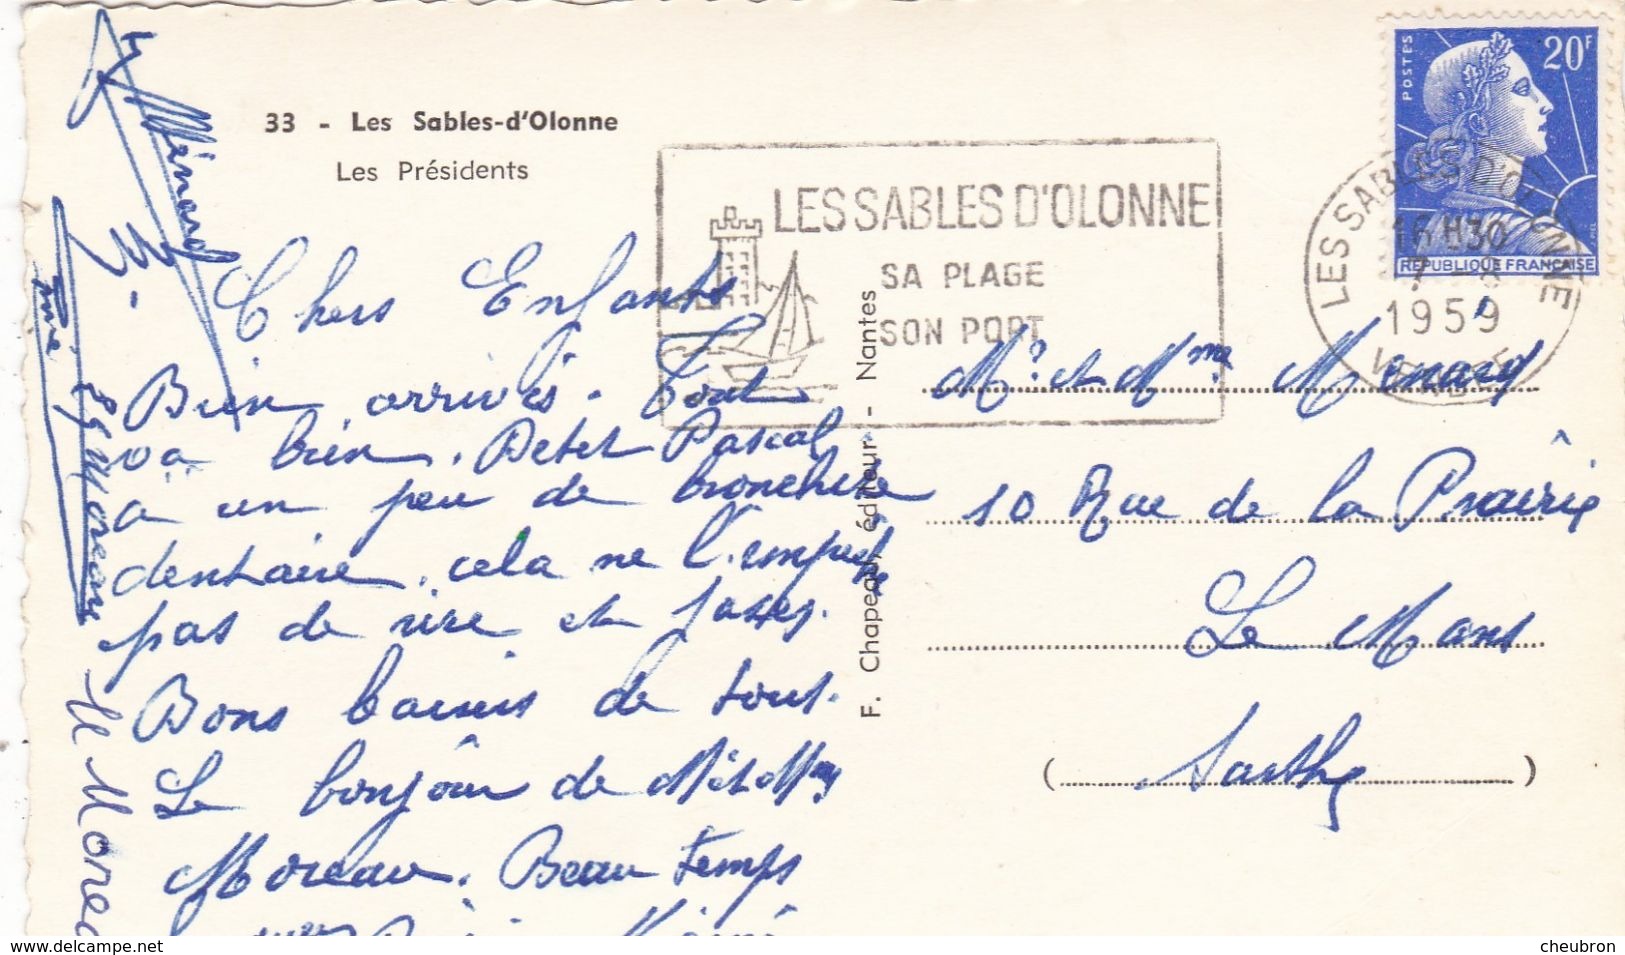 33 - Les Sables-d'Olonne
Les Présidents
LES SABLES D'OLONNE
SA PLAGE
SON PORT
POSTES
20F
REPUBLIQUE FRANÇAISE
LES SABLES D'OLONNE
16 H30
7 - 8
1959
VENDEE
Chers Enfants
Bien arrivés. Tout
va bien. Petit Pascal
a un peu de bronchite
dentaire. cela ne l'empêche
pas de rire et jaser.
Bons baisers de tous.
Le bonjour de Mr et Mme
Moreau. Beau temps
Ménard
Moreau
F. Chapeau, éditeur - Nantes
Mr et Mme Menard
10 Rue de la Prairie
Le Mans
( Sarthe )
www.delcampe.net
cheubron